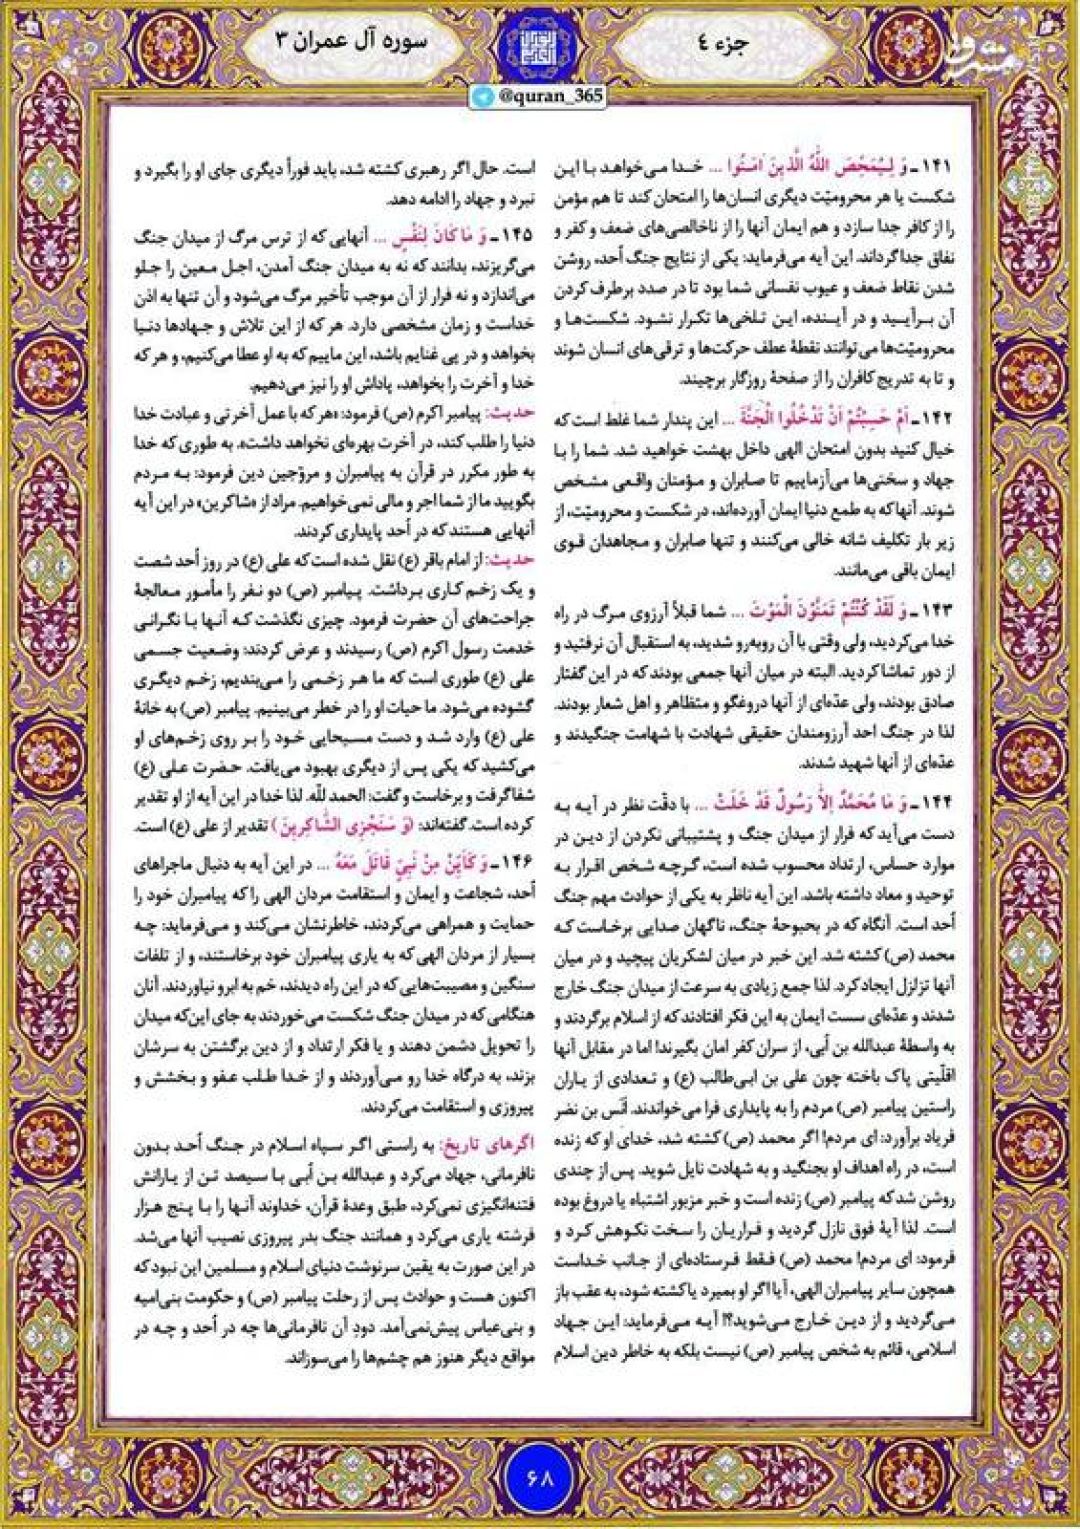 جزء ۴
سوره آل عمران ۳
@quran_365
مشرق
۱۴۱ـ وَ لِيُمَحِّصَ اللّٰهُ الَّذِينَ اٰمَنُوا ... خدا می‌خواهد با این
شکست یا هر محرومیّت دیگری انسان‌ها را امتحان کند تا هم مؤمن
را از کافر جدا سازد و هم ایمان آنها را از ناخالصی‌های ضعف و کفر و
نفاق جدا گرداند. این آیه می‌فرماید: یکی از نتایج جنگ اُحد، روشن
شدن نقاط ضعف و عیوب نفسانی شما بود تا در صدد برطرف کردن
آن برآیید و در آینده، این تلخی‌ها تکرار نشود. شکست‌ها و
محرومیّت‌ها می‌توانند نقطهٔ عطف حرکت‌ها و ترقی‌های انسان شوند
و تا به تدریج کافران را از صفحهٔ روزگار برچیند.
۱۴۲ـ اَمْ حَسِبْتُمْ اَنْ تَدْخُلُوا الْجَنَّةَ ... این پندار شما غلط است که
خیال کنید بدون امتحان الهی داخل بهشت خواهید شد. شما را با
جهاد و سختی‌ها می‌آزماییم تا صابران و مؤمنان واقعی مشخص
شوند. آنها که به طمع دنیا ایمان آورده‌اند، در شکست و محرومیّت، از
زیر بار تکلیف شانه خالی می‌کنند و تنها صابران و مجاهدان قوی
ایمان باقی می‌مانند.
۱۴۳ـ وَ لَقَدْ كُنْتُمْ تَمَنَّوْنَ الْمَوْتَ ... شما قبلاً آرزوی مرگ در راه
خدا می‌کردید، ولی وقتی با آن روبه‌رو شدید، به استقبال آن نرفتید و
از دور تماشا کردید. البته در میان آنها جمعی بودند که در این گفتار
صادق بودند، ولی عدّه‌ای از آنها دروغگو و متظاهر و اهل شعار بودند.
لذا در جنگ احد آرزومندان حقیقی شهادت با شهامت جنگیدند و
عدّه‌ای از آنها شهید شدند.
۱۴۴ـ وَ مَا مُحَمَّدٌ اِلاّٰ رَسُولٌ قَدْ خَلَتْ ... با دقّت نظر در آیه به
دست می‌آید که فرار از میدان جنگ و پشتیبانی نکردن از دین در
موارد حساس، ارتداد محسوب شده است، گرچه شخص اقرار به
توحید و معاد داشته باشد. این آیه ناظر به یکی از حوادث مهم جنگ
اُحد است. آنگاه که در بحبوحهٔ جنگ، ناگهان صدایی برخاست که
محمد (ص) کشته شد. این خبر در میان لشکریان پیچید و در میان
آنها تزلزل ایجاد کرد. لذا جمع زیادی به سرعت از میدان جنگ خارج
شدند و عدّه‌ای سست ایمان به این فکر افتادند که از اسلام برگردند و
به واسطهٔ عبدالله بن اُبی، از سران کفر امان بگیرند! اما در مقابل آنها
اقلّیتی پاک باخته چون علی بن ابی‌طالب (ع) و تعدادی از یاران
راستین پیامبر (ص) مردم را به پایداری فرا می‌خواندند. اَنَس بن نضر
فریاد برآورد: ای مردم! اگر محمد (ص) کشته شد، خدای او که زنده
است، در راه اهداف او بجنگید و به شهادت نایل شوید. پس از چندی
روشن شد که پیامبر (ص) زنده است و خبر مزبور اشتباه یا دروغ بوده
است. لذا آیهٔ فوق نازل گردید و فراریان را سخت نکوهش کرد و
فرمود: ای مردم! محمد (ص) فقط فرستاده‌ای از جانب خداست
همچون سایر پیامبران الهی، آیا اگر او بمیرد یا کشته شود، به عقب باز
می‌گردید و از دین خارج می‌شوید؟! آیه می‌فرماید: این جهاد
اسلامی، قائم به شخص پیامبر (ص) نیست بلکه به خاطر دین اسلام
است. حال اگر رهبری کشته شد، باید فوراً دیگری جای او را بگیرد و
نبرد و جهاد را ادامه دهد.
۱۴۵ـ وَ مَا كَانَ لِنَفْسٍ ... آنهایی که از ترس مرگ از میدان جنگ
می‌گریزند، بدانند که نه به میدان جنگ آمدن، اجل معین را جلو
می‌اندازد و نه فرار از آن موجب تأخیر مرگ می‌شود و آن تنها به اذن
خداست و زمان مشخصی دارد. هر که از این تلاش و جهادها دنیا
بخواهد و در پی غنایم باشد، این ماییم که به او عطا می‌کنیم، و هر که
خدا و آخرت را بخواهد، پاداش او را نیز می‌دهیم.
حدیث: پیامبر اکرم (ص) فرمود: «هر که با عمل آخرتی و عبادت خدا
دنیا را طلب کند، در آخرت بهره‌ای نخواهد داشت». به طوری که خدا
به طور مکرر در قرآن به پیامبران و مروّجین دین فرمود: به مردم
بگویید ما از شما اجر و مالی نمی‌خواهیم. مراد از «شاکرین» در این آیه
آنهایی هستند که در اُحد پایداری کردند.
حدیث: از امام باقر (ع) نقل شده است که علی (ع) در روز اُحد شصت
و یک زخم کاری برداشت. پیامبر (ص) دو نفر را مأمور معالجهٔ
جراحت‌های آن حضرت فرمود. چیزی نگذشت که آنها با نگرانی
خدمت رسول اکرم (ص) رسیدند و عرض کردند: وضعیت جسمی
علی (ع) طوری است که ما هر زخمی را می‌بندیم، زخم دیگری
گشوده می‌شود. ما حیات او را در خطر می‌بینیم. پیامبر (ص) به خانهٔ
علی (ع) وارد شد و دست مسیحایی خود را بر روی زخم‌های او
می‌کشید که یکی پس از دیگری بهبود می‌یافت. حضرت علی (ع)
شفا گرفت و برخاست و گفت: الحمد للّه. لذا خدا در این آیه از او تقدیر
کرده است. گفته‌اند: (وَ سَنَجْزِی الشَّاكِرِينَ) تقدیر از علی (ع) است.
۱۴۶ـ وَ كَأَيِّنْ مِنْ نَبِيٍّ قَاتَلَ مَعَهُ ... در این آیه به دنبال ماجراهای
اُحد، شجاعت و ایمان و استقامت مردان الهی را که پیامبران خود را
حمایت و همراهی می‌کردند، خاطرنشان می‌کند و می‌فرماید: چه
بسیار از مردان الهی که به یاری پیامبران خود برخاستند، و از تلفات
سنگین و مصیبت‌هایی که در این راه دیدند، خم به ابرو نیاوردند. آنان
هنگامی که در میدان جنگ شکست می‌خوردند به جای این‌که میدان
را تحویل دشمن دهند و یا فکر ارتداد و از دین برگشتن به سرشان
بزند، به درگاه خدا رو می‌آوردند و از خدا طلب عفو و بخشش و
پیروزی و استقامت می‌کردند.
اگرهای تاریخ: به راستی اگر سپاه اسلام در جنگ اُحد بدون
نافرمانی، جهاد می‌کرد و عبدالله بن اُبی با سیصد تن از یارانش
فتنه‌انگیزی نمی‌کرد، طبق وعدهٔ قرآن، خداوند آنها را با پنج هزار
فرشته یاری می‌کرد و همانند جنگ بدر پیروزی نصیب آنها می‌شد.
در این صورت به یقین سرنوشت دنیای اسلام و مسلمین این نبود که
اکنون هست و حوادث پس از رحلت پیامبر (ص) و حکومت بنی‌امیه
و بنی‌عباس پیش نمی‌آمد. دودِ آن نافرمانی‌ها چه در اُحد و چه در
مواقع دیگر هنوز هم چشم‌ها را می‌سوزاند.
۶۸